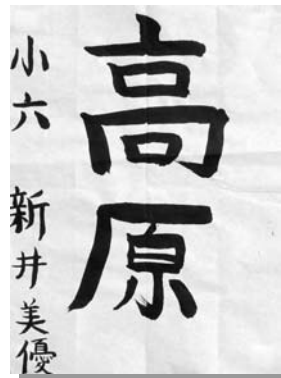 高原
小六 新井美優